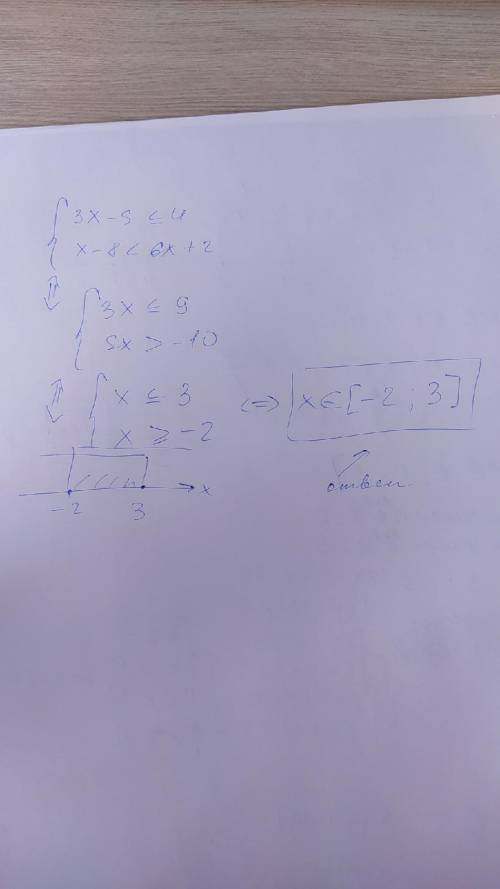 { 3x - 5 ≤ 4
x - 8 < 6x + 2
⇕
{ 3x ≤ 9
5x > -10
⇕
{ x ≤ 3
x ≥ -2
⇔ x ∈ [-2 ; 3]
ответ
x
-2 3